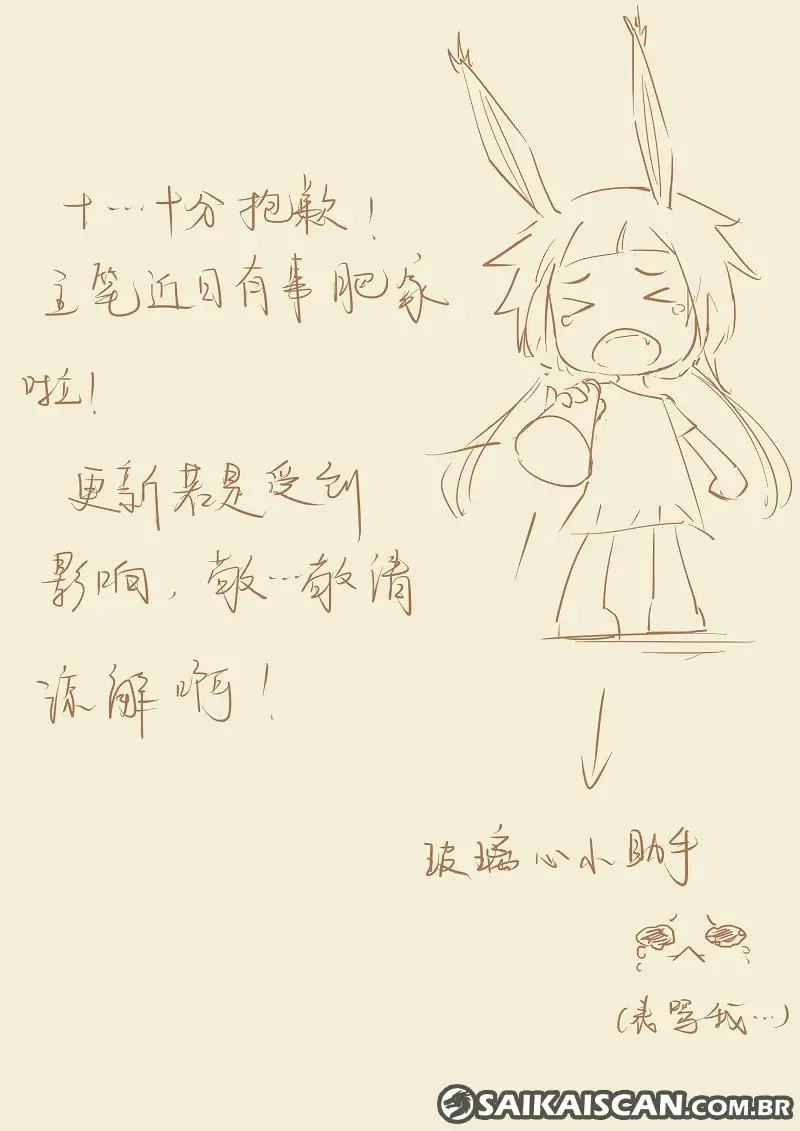 十…十分抱歉！
主笔近日有事肥家
啦！
更新若是受到
影响，敬…敬请
谅解啊！
玻璃心小助手
(表骂我…)
SAIKAISCAN.COM.BR